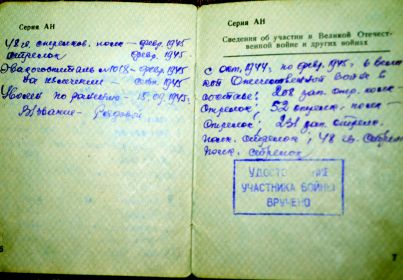 Серия АН
48 гв. стрелков. полк – февр. 1945
стрелок февр. 1945
Эвакогоспиталь №1018 – февр. 1945
на излечении
Уволен по ранению – 15.09.1945г.
Звание – рядовой
Серия АН
Сведения об участии в Великой Отечест-
венной войне и других войнах
с окт. 1944г. по февр. 1945 в Вели
кой Отечественной войне в
составе: 208 зап. стр. полк –
стрелок; 52 стрелк. полк –
стрелок; 231 зап. стрелк.
полк, стрелок; 48 гв. стрелк.
полк, стрелок
УДОСТО ЕНИЕ
УЧАСТНИКА ВОЙНЫ
ВРУЧЕНО
6
7